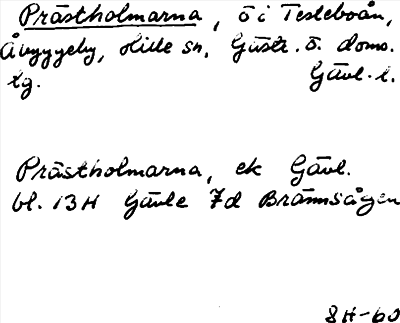 Prästholmarna, ö i Testeboån,
Åbyggeby, Hille sn, Gästr. ö. doms.
tg. Gävl. l.
Prästholmarna, ek Gävl.
bl. 13H Gävle 7d Brännsågen
8H-60